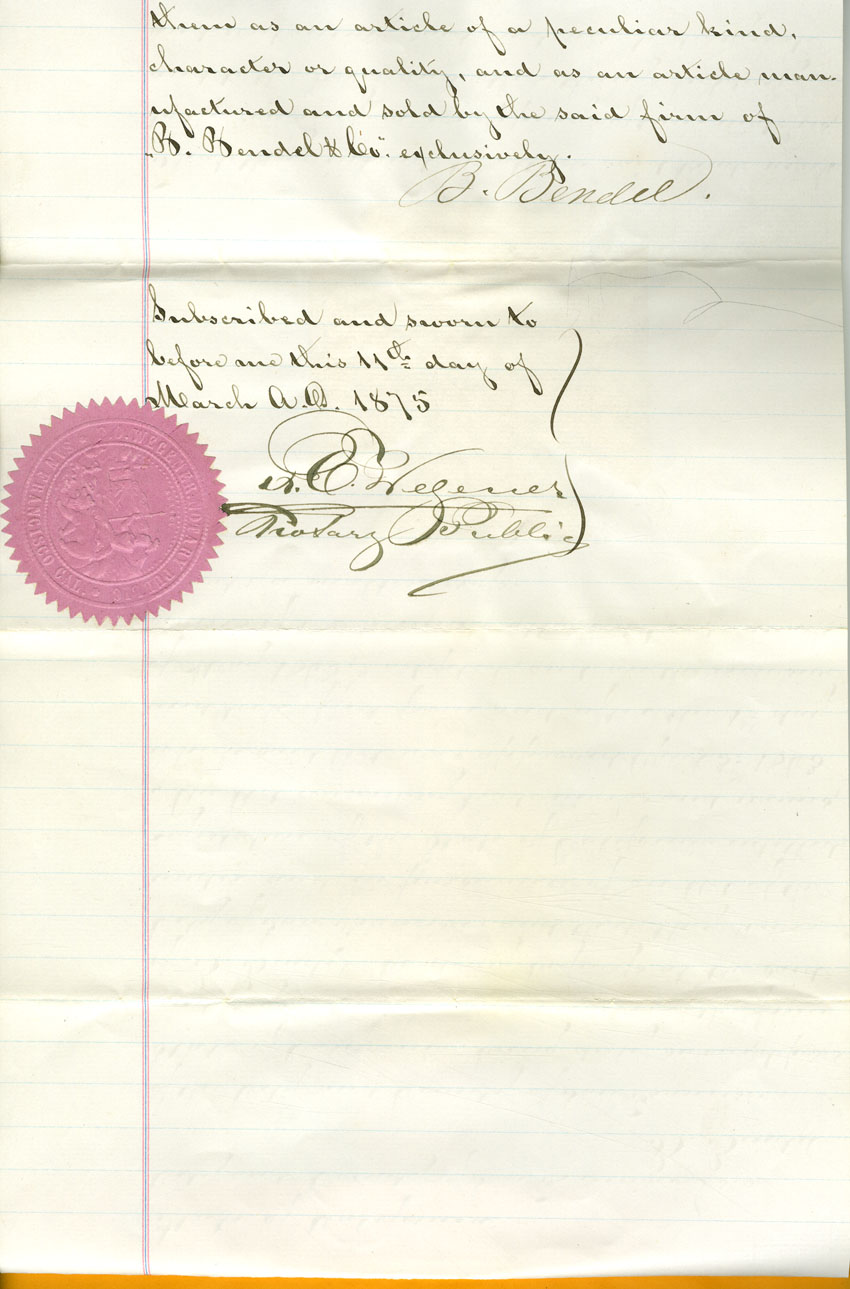 them as an article of a peculiar kind,
character or quality, and as an article man-
ufactured and sold by the said firm of
"B. Bendel & Co". exclusively.
B. Bendel.
Subscribed and sworn to
before me this 11th day of
March A.D. 1875
E. Wegener
Notary Public